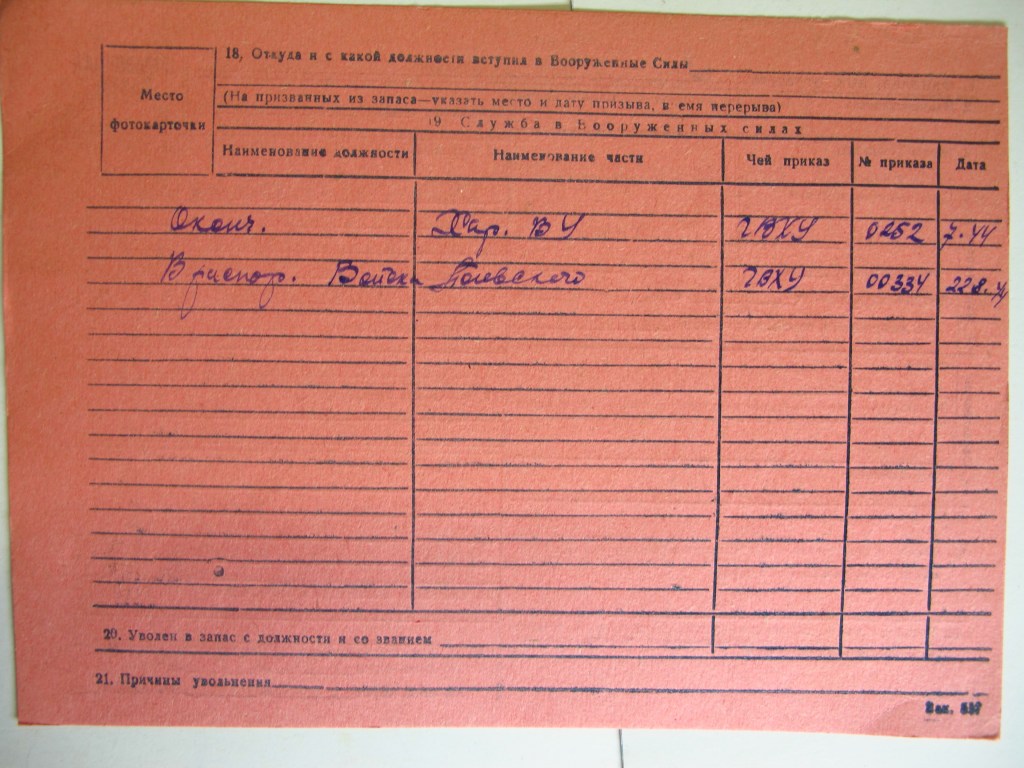 18, Откуда и с какой должности вступил в Вооруженные Силы
Место
фотокарточки
(На призванных из запаса—указать место и дату призыва, время перерыва)
19. Служба в Вооруженных силах
Наименование должности Наименование части Чей приказ № приказа Дата
Оконч. Хар. ВУ ГВХУ 0252 7.44
В распор. Войска Польского ГВХУ 00334 22.8.44
20. Уволен в запас с должности и со званием
21. Причины увольнения
Зак. 537